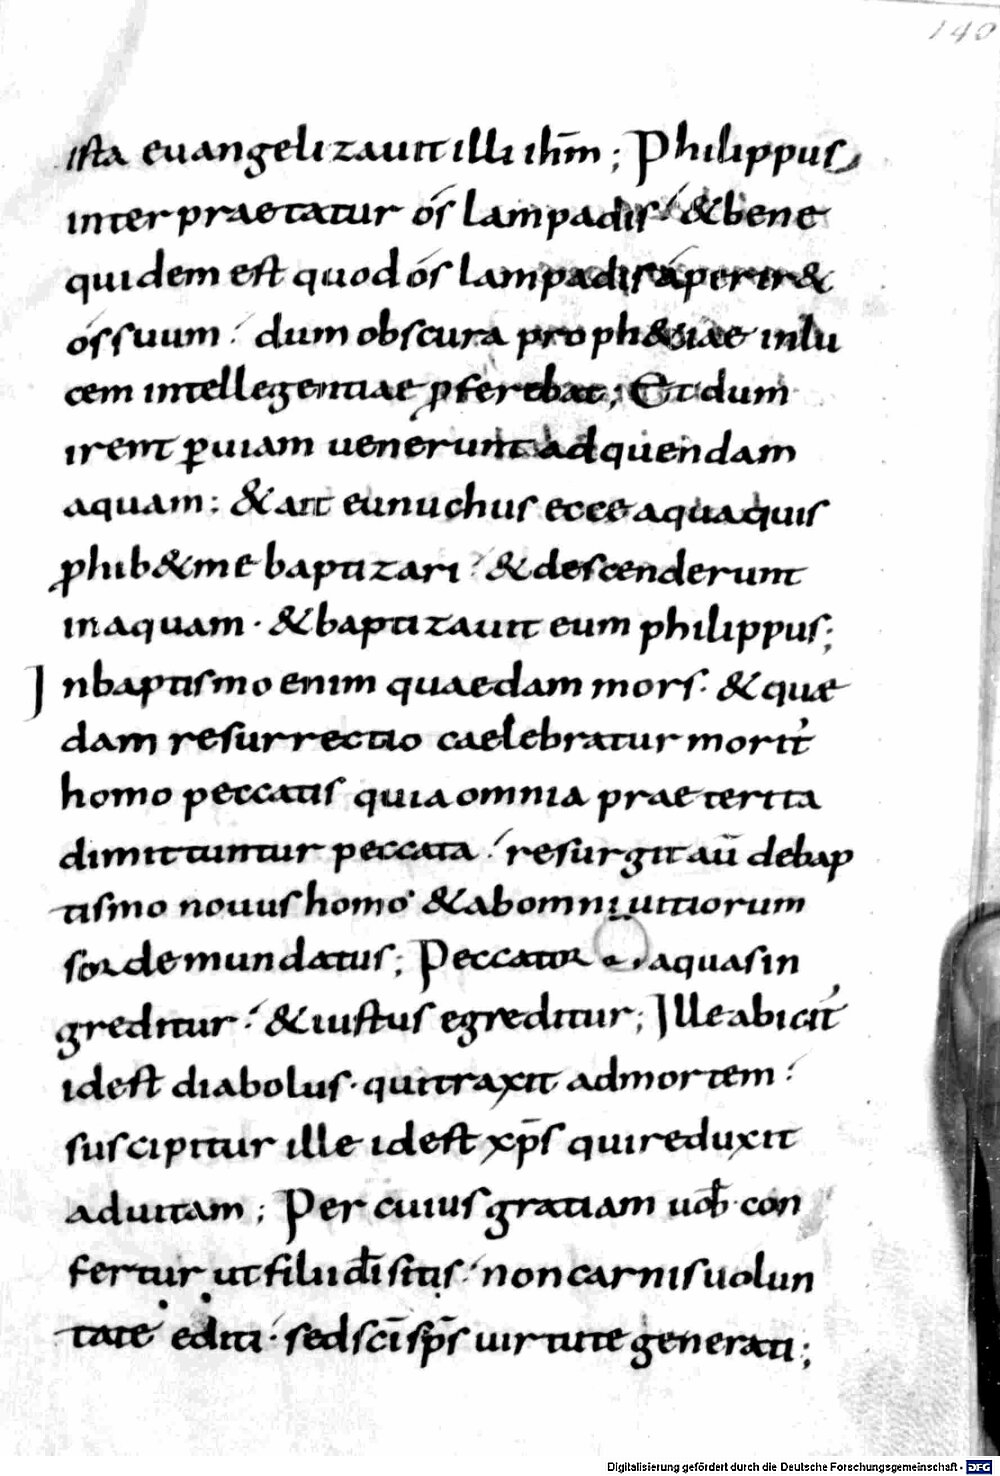 140
ista euangelizauit illi ihm̅; Philippus
interpraetatur ós lampadis; & bene
quidem est quod ós lampadis aperir&
ós suum; dum obscura proph&iae inlu
cem intellegentiae ꝓferebat; Et dum
irent ꝑuiam uenerunt ad quendam
aquam; & ait eunuchus ecce aqua quis
ꝓhib& me baptizari; & descenderunt
in aquam · & baptizauit eum philippus;
In baptismo enim quaedam mors · & quae
dam resurrectio caelebratur morit᾿
homo peccatis quia omnia praeterita
dimittuntur peccata; resurgit au̅ debap
tismo nouus homo & ab omni uitiorum
sorde mundatus; Peccator aquas in
greditur; & iustus egreditur; Ille abicit᾿
id est diabolus · qui traxit ad mortem;
suscipitur ille id est xp̅s qui reduxit
ad uitam; Per cuius gratiam uob̅ con
fertur ut filii di̅ sitis; non carnis uolun
tate editi · sed sci̅ sp̅s uirtute generati;
Digitalisierung gefördert durch die Deutsche Forschungsgemeinschaft - DFG